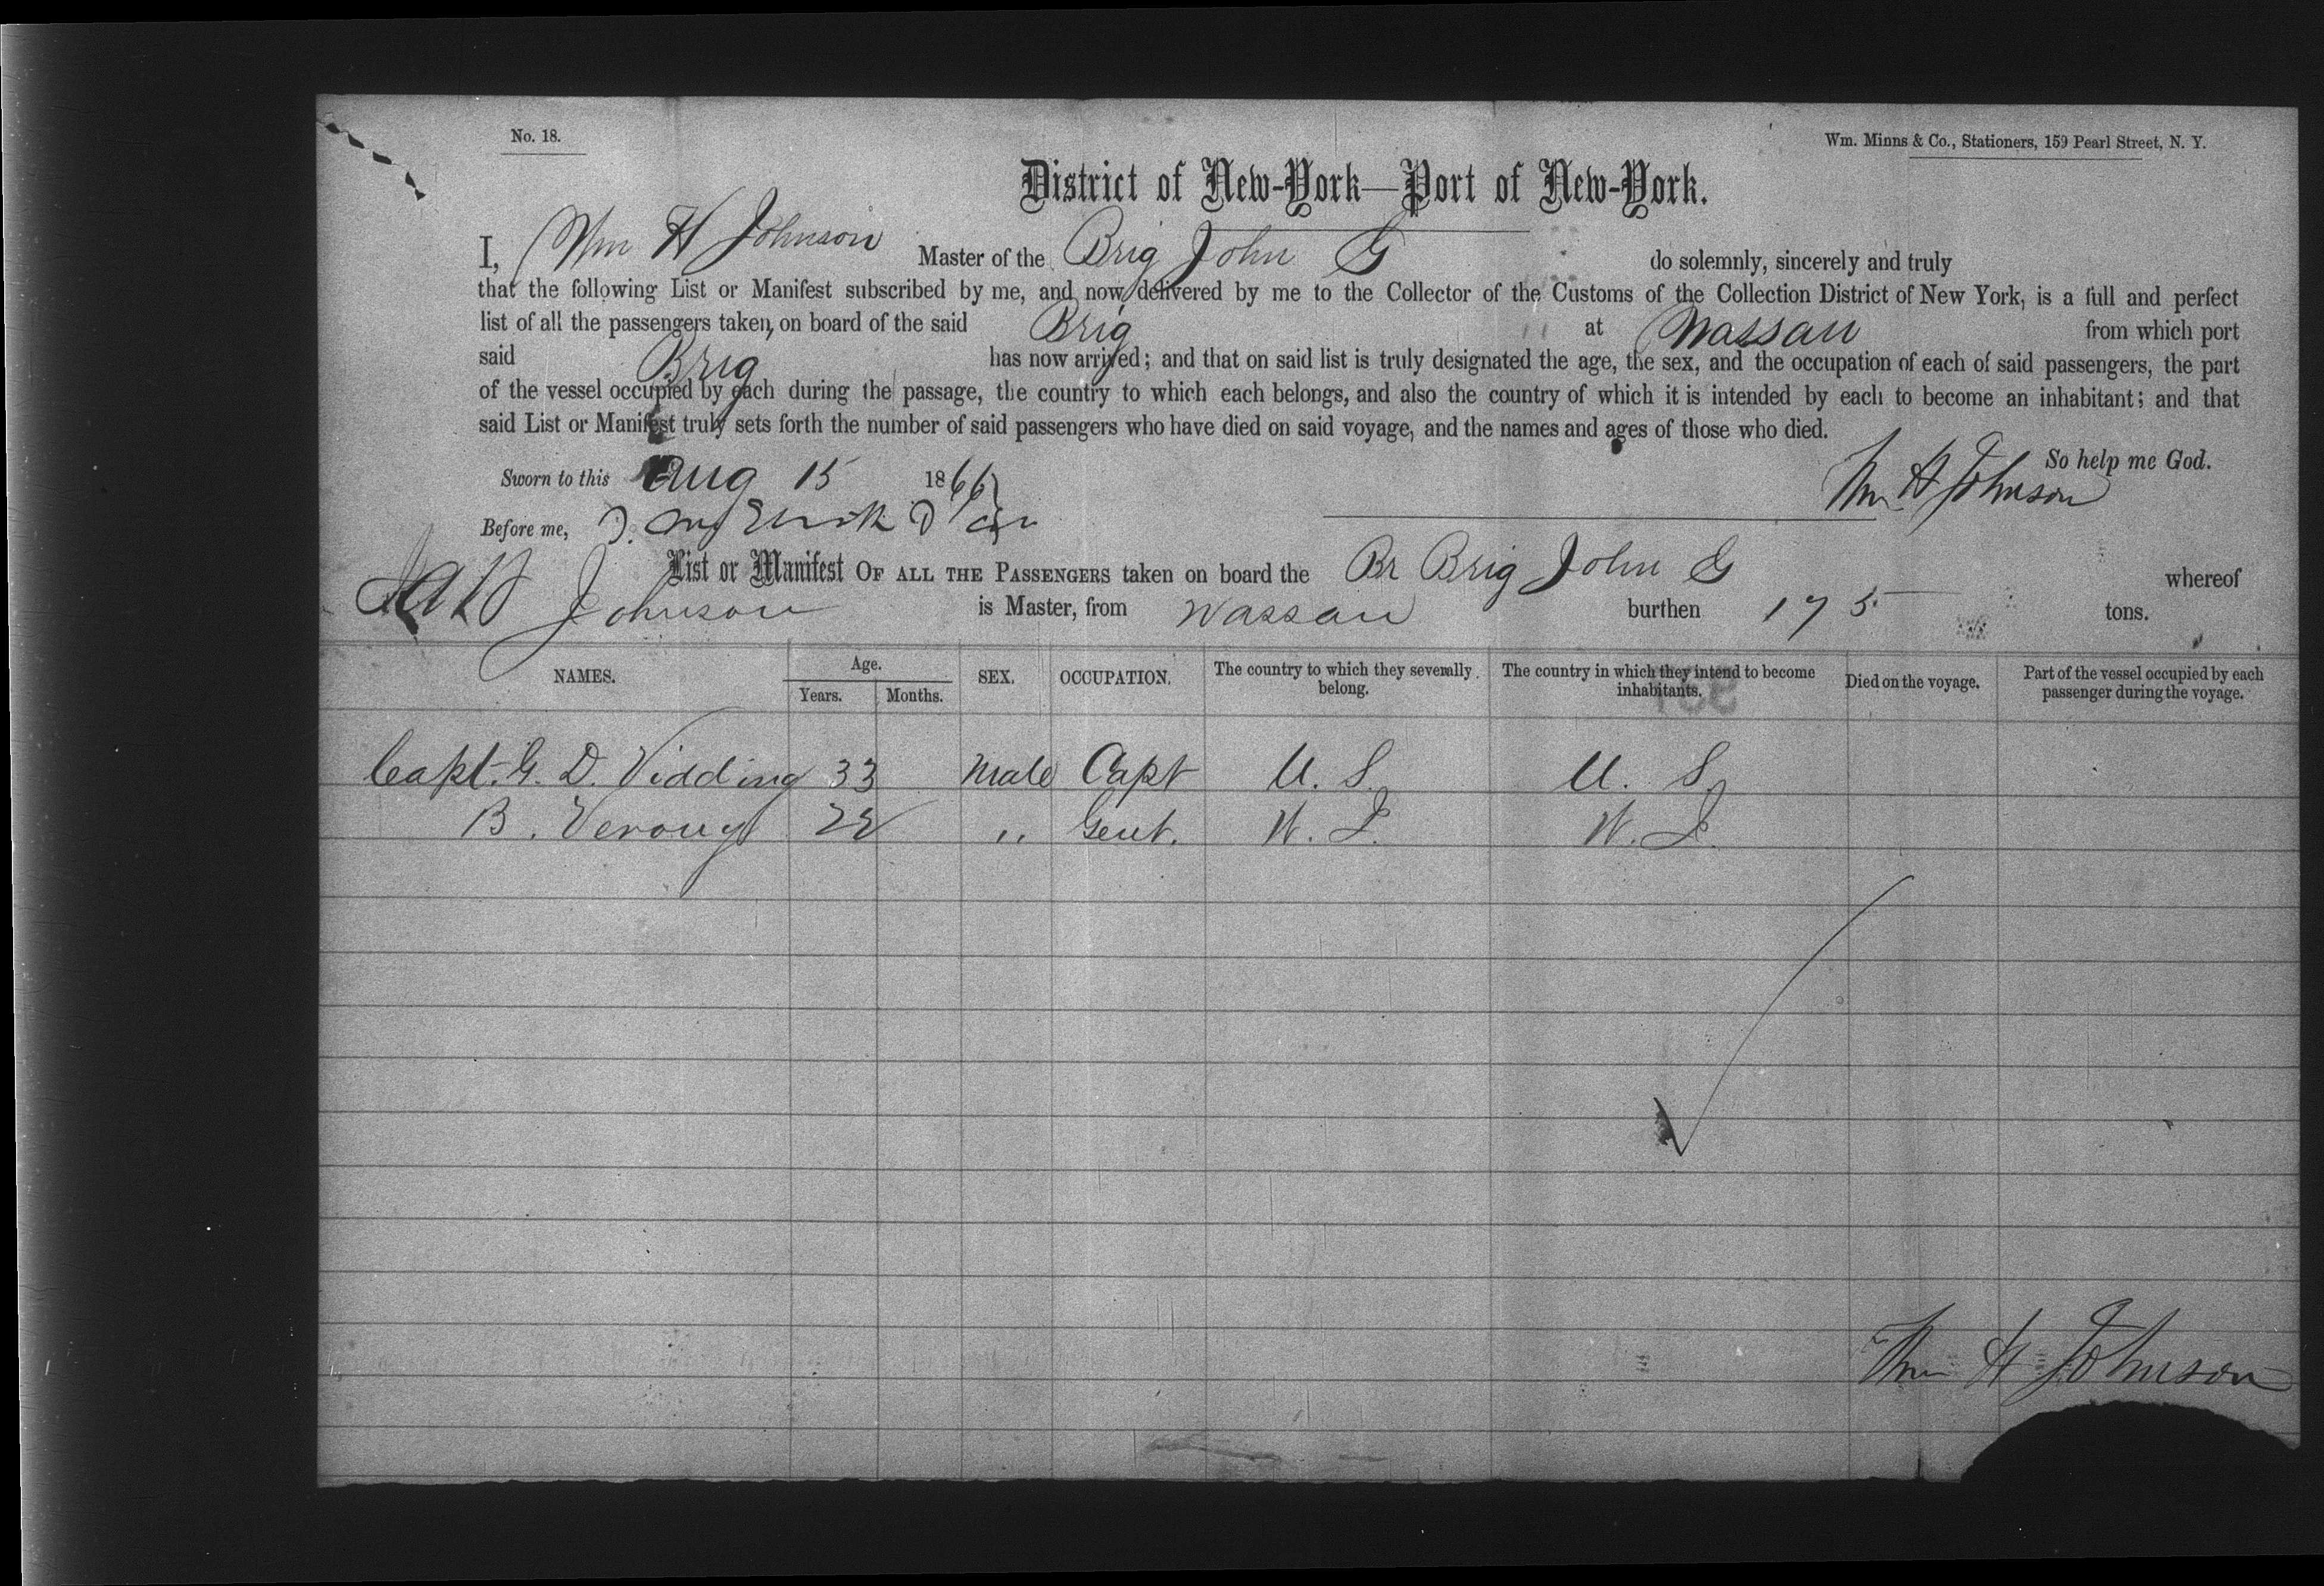 No. 18.
Wm. Minns & Co., Stationers, 159 Pearl Street, N. Y.
District of New-York—Port of New-York.
I, Wm H Johnson Master of the Brig John G do solemnly, sincerely and truly
that the following List or Manifest subscribed by me, and now delivered by me to the Collector of the Customs of the Collection District of New York, is a full and perfect
list of all the passengers taken on board of the said Brig at Nassau from which port
said Brig has now arrived; and that on said list is truly designated the age, the sex, and the occupation of each of said passengers, the part
of the vessel occupied by each during the passage, the country to which each belongs, and also the country of which it is intended by each to become an inhabitant; and that
said List or Manifest truly sets forth the number of said passengers who have died on said voyage, and the names and ages of those who died.
So help me God.
Sworn to this Aug 15 1866 Wm H Johnson
Before me,
List or Manifest OF ALL THE PASSENGERS taken on board the Br Brig John G whereof
Johnson is Master, from Nassau burthen 175 tons.
NAMES. Age. Years. Months. SEX. OCCUPATION. The country to which they severally belong. The country in which they intend to become inhabitants. Died on the voyage. Part of the vessel occupied by each passenger during the voyage.
Capt. G. D. Vidding 33 Male Capt U. S. U. S.
B. Verouy 22 " Gent. W. I. W. I.
Wm H Johnson